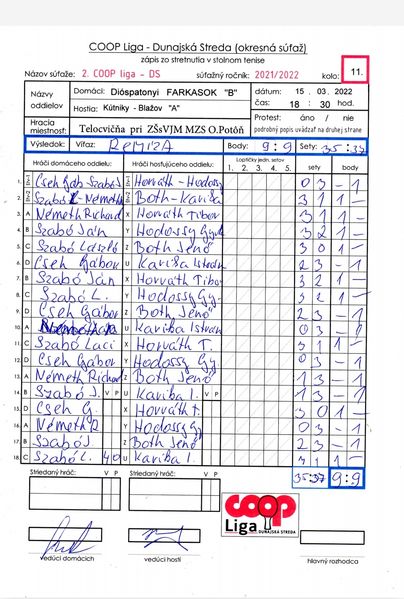 COOP Liga - Dunajská Streda (okresná súťaž)
zápis zo stretnutia v stolnom tenise
Názov súťaže: 2. COOP liga - DS súťažný ročník: 2021/2022 kolo: 11.
Názvy oddielov Domáci: Dióspatonyi FARKASOK "B" dátum: 15 . 03. 2022
Hostia: Kútniky - Blažov "A" čas: 18 : 30 hod.
Hracia miestnosť: Telocvičňa pri ZŠsVJM MZS O.Potôň Protest: áno / nie Pripomienky: áno / nie
podrobný popis uvádzať na druhej strane
Výsledok: Víťaz: REMÍZA Body: 9:9 Sety: 35:37
Hráči domáceho oddielu: Hráči hosťujúceho oddielu: Loptičky jedn. setov sety body
1. 2. 3. 4. 5.
Cseh Gáb Szabó J Horváth - Hodossy 0 3 - 1
2. Szabó L - Németh Both - Karika 3 1 1 -
3. A Németh Richard X Horváth Tibor 3 1 1 -
4. B Szabó Ján Y Hodossy Gyula 3 2 1 -
5. C Szabó László Z Both Jenő 3 0 1 -
6. D Cseh Gábor U Karika István 2 3 - 1
7. B Szabó Ján X Horváth Tibor 3 2 1 -
8. C Szabó L. Y Hodossy Gy. 3 2 1 -
9. D Cseh Gábor Z Both Jenő 2 3 - 1
10. A U Karika István 0 3 - 1
11. C Szabó Laci X Horváth T. 3 1 1 -
12. D Cseh Gábor Y Hodossy Gy. 2 3 - 1
13. A Németh Richard Z Both Jenő 1 3 - 1
14. B Szabó J. V P U Karika I. V P 1 3 - 1
15. D Cseh G. X Horváth T. 3 0 1 -
16. A Németh R Y Hodossy Gy 2 3 - 1
17. B Szabó J Z Both Jenő 2 3 - 1
18. C Szabó L. U Karika I. 3 1 1 -
Striedaný hráč: V P Striedaný hráč: V P 35:37 9:9
coop
Liga DUNAJSKÁ STREDA
vedúci domácich vedúci hostí hlavný rozhodca